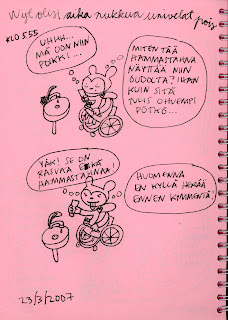 Nyt olisi aika nukkua univelat pois
KLO 5.55
UHHH...
MÄ OON NIIN
POIKKI...
MITEN TÄÄ
HAMMASTAHNA
NÄYTTÄÄ NIIN
OUDOLTA? IHAN
KUIN SITÄ
TULIS OHUEMPI
PÖTKÖ...
YÄK! SE ON
RASVAA EIKÄ
HAMMASTAHNAA!
HUOMENNA
EN KYLLÄ HERÄÄ
ENNEN KYMMENTÄ!
23/3/2007